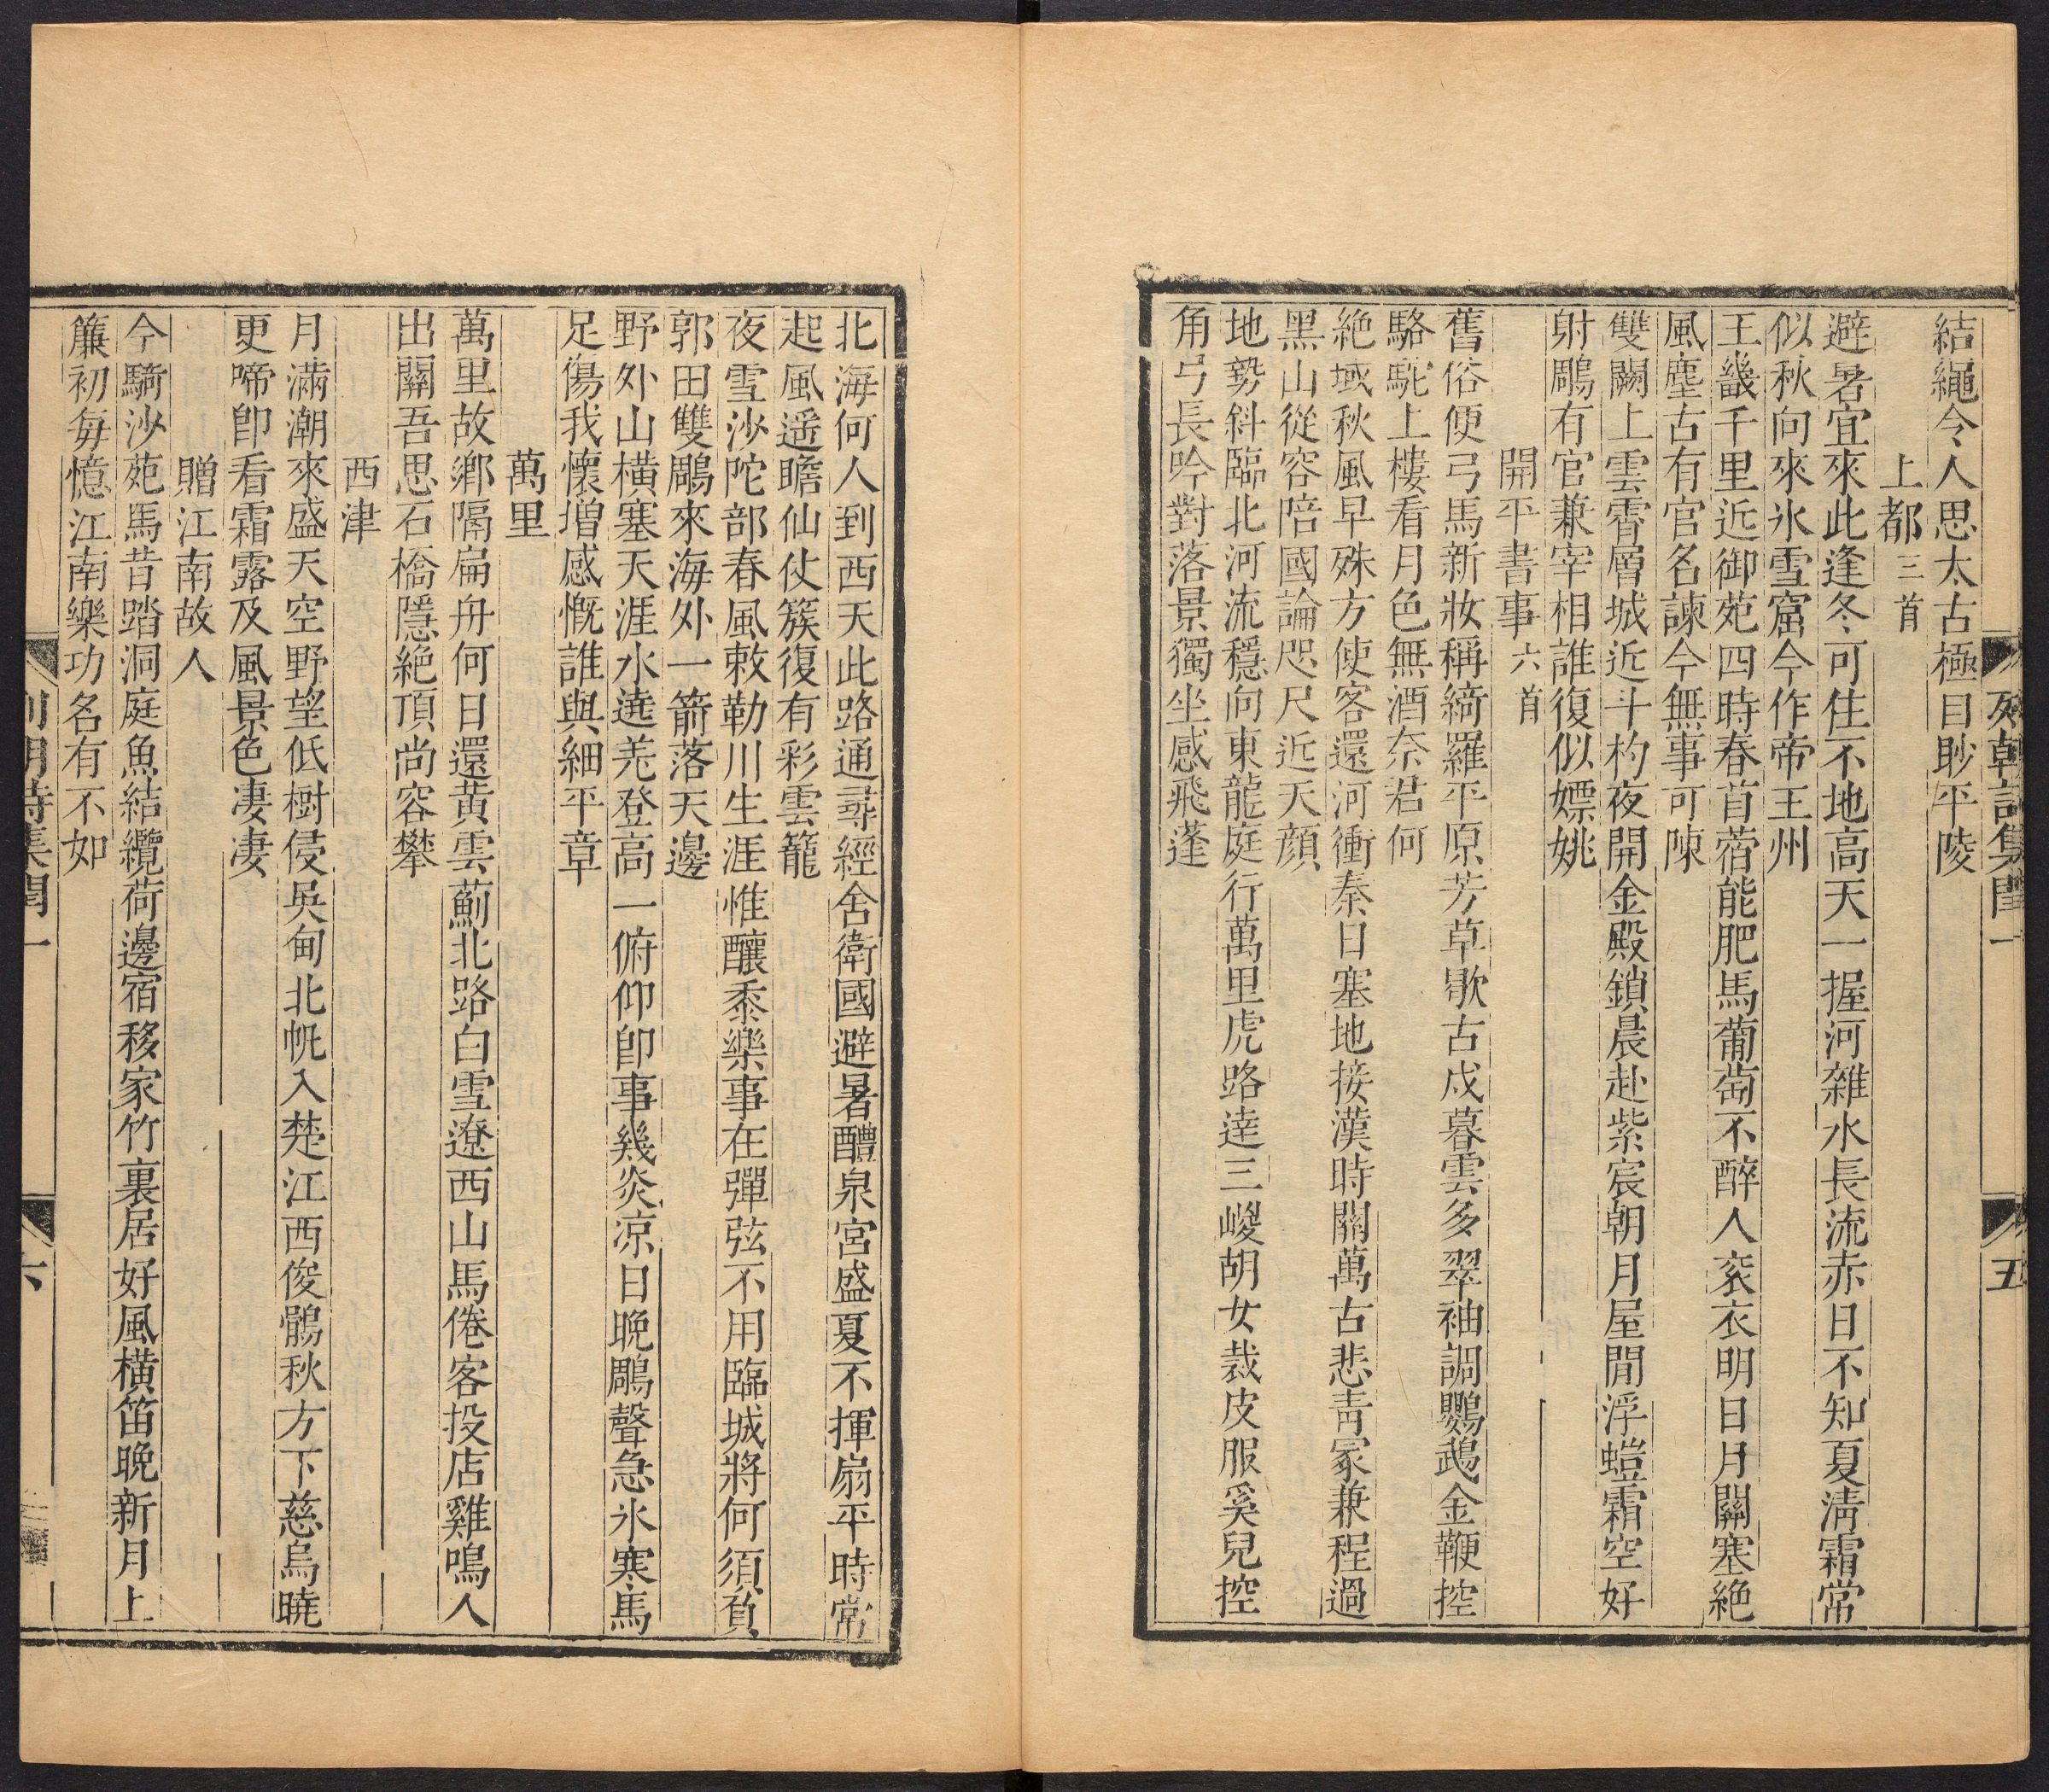 列朝詩集閏一
五
結繩今人思太古極目眇平陵
上都三首
避暑宜來此逢冬可住不地高天一握河雜水長流赤日不知夏淸霜常
似秋向來氷雪窟今作帝王州
王畿千里近御苑四時春首蓿能肥馬葡萄不醉人衮衣明日月關塞絶
風塵古有官名諫今無事可陳
雙闕上雲霄層城近斗杓夜開金殿鎖晨赴紫宸朝月屋閒浮螘霜空好
射鵰有官兼宰相誰復似嫖姚
開平書事六首
舊俗便弓馬新妝稱綺羅平原芳草歇古戍暮雲多翠袖調鸚鵡金鞭控
駱駝上樓看月色無酒奈君何
絶域秋風早殊方使客還河衝秦日塞地接漢時關萬古悲靑冢兼程過
黑山從容陪國論咫尺近天顏
地勢斜臨北河流穩向東龍庭行萬里虎路達三嵕胡女裁皮服奚兒控
角弓長吟對落景獨坐感飛蓬
北海何人到西天此路通尋經舍衛國避暑醴泉宮盛夏不揮扇平時常
起風遥瞻仙仗簇復有彩雲籠
夜雪沙陀部春風敕勒川生涯惟釀黍樂事在彈弦不用臨城將何須負
郭田雙鵰來海外一箭落天邊
野外山橫塞天涯水遶羌登高一俯仰卽事幾炎凉日晚鵰聲急氷寒馬
足傷我懷增感慨誰與細平章
萬里
萬里故鄕隔扁舟何日還黄雲薊北路白雪遼西山馬倦客投店雞鳴人
出關吾思石橋隱絶頂尚容攀
西津
月滿潮來盛天空野望低樹侵吳甸北帆入楚江西俊鶻秋方下慈烏曉
更啼卽看霜露及風景色凄凄
贈江南故人
今騎沙苑馬昔踏洞庭魚結纜荷邊宿移家竹裏居好風橫笛晚新月上
簾初每憶江南樂功名有不如
列朝詩集閏一
六